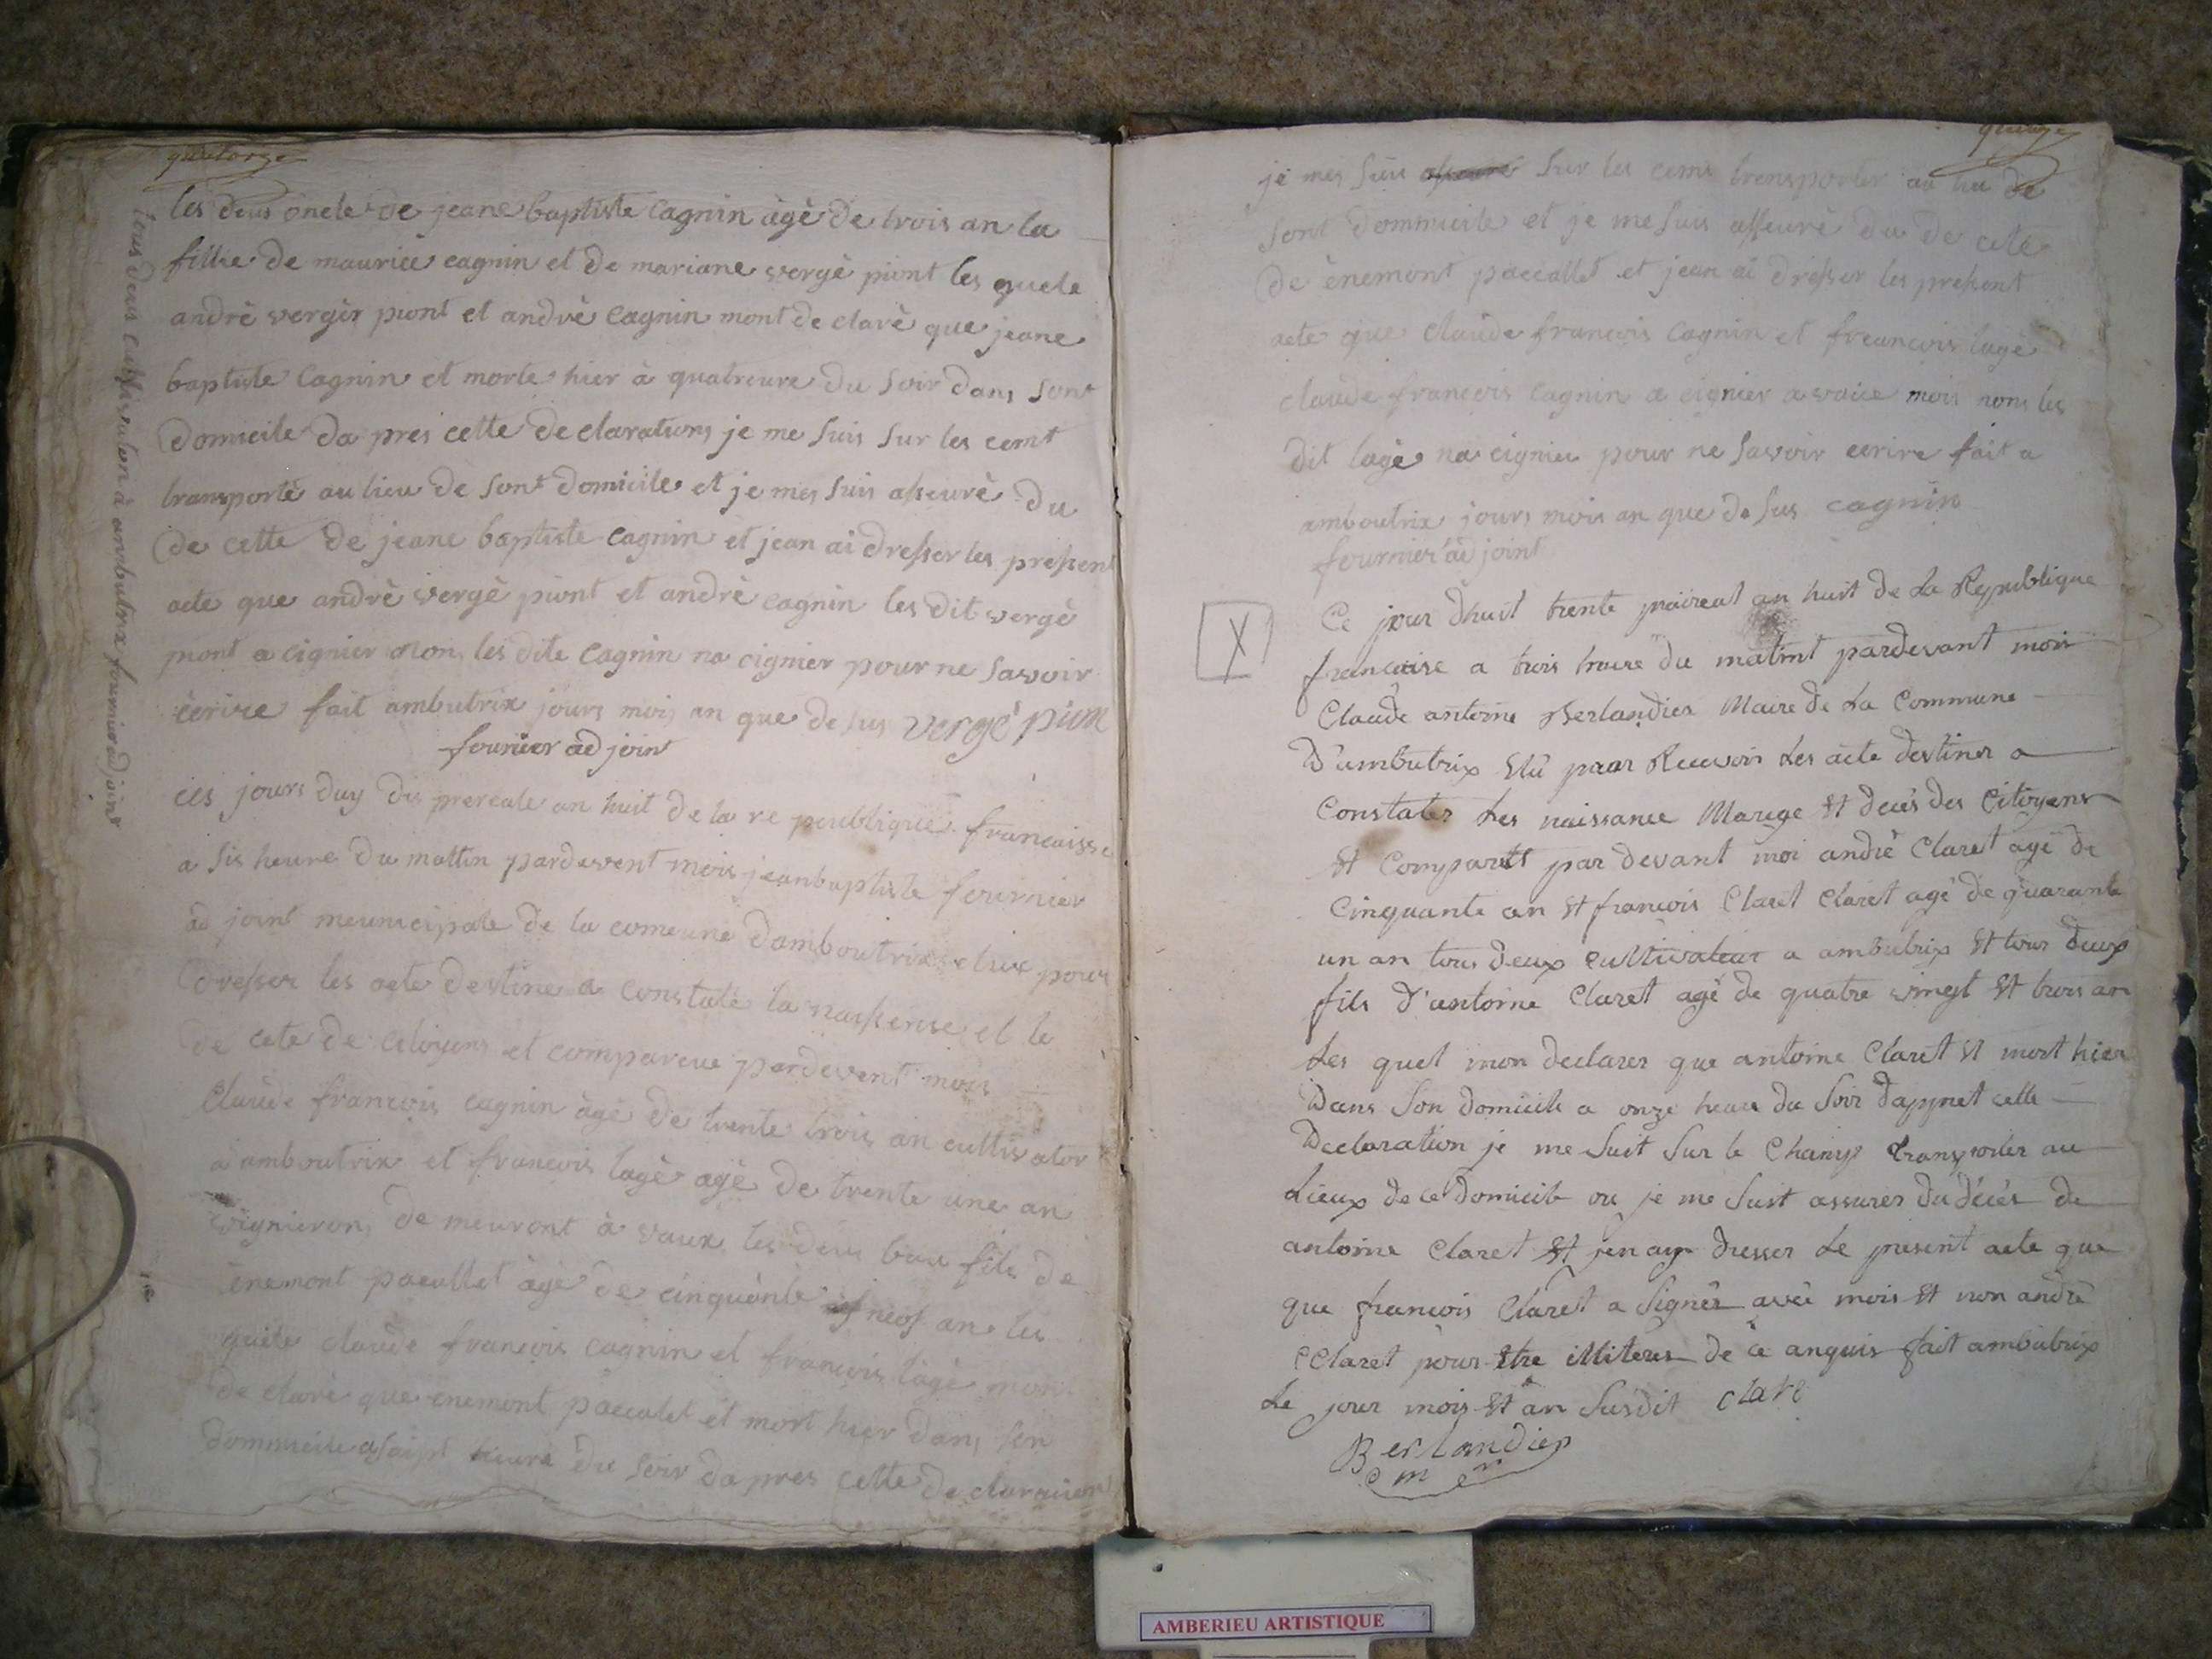 quatorze
les deus oncle de jeane baptiste cagnin àgè de trois an la
fillie de maurice cagnin et de mariane vergè piont les quele
andrè vergèr piont et andrè cagnin mont de clarè que jeane
baptiste cagnin et morte hier à quatreure du soir dans sont
domicile da pres cette declarations je me suis sur les cemt
transportè au lieu de sont domicile et je mes suis asseurè du
de cette de jeane baptiste cagnin et jean ai dresser les pressent
acte que andrè vergè piont et andrè cagnin les dit vergè
piont a cignier non les dite cagnin na cignier pour ne savoir
ècrire fait ambutrix jours mois an que de sus vergè pion
fournier ad joint
tous deus cultivaton à ambutrix fournier adjoint
ces jours duy dis prereale an huit de la re peublique francaisse
a sis heure du mattin pardevent mois jeanbaptiste fournier
ad joint meunicipale de la comeune damboutrix elüe pour
dresser les acte destine a constatè la naissense et le
de cete de citoyens et compareue pardevent mois
Claude francois cagnin àgè de trente trois an cultivator
a amboutrix et francois lagè agè de trente une an
vignieron de meuront à vaux les deus bau fils de
ènemont pacallet àgè de cinquànte neof an les
quele claude francois cagnin et francois làgè mont
de clarè que enemont paccalet et mort hier dans son
dommicile a saipt heure du soir da pres cette de claration
quinze
je mes suis sur les cems transporter au lieu de
sont dommicile et je me suis asseurè du de cete
de ènemont paccallet et jean ai dresser les pressent
acte que claude francois cagnin et freancois lagè
claude francois cagnin a cignier avaice mois nons les
dit lagè na cignier pour ne savoir ecrire fait a
amboutrix jours mois an que de sus cagnin
fournier ad joint
X
Ce jour dhuit trente praireal an huit de La Republique
francaise a trois heure du matint pardevant moi
Claude antoine Berlandier Maire de La Commune
D'ambutrix Elû pour Recevoir Les acte destiner a
Constater Les naissance Marege Et decès des Citoyens
Et Comparut par devant moi andrè Claret agè de
Cinquante an Et francois Claret Claret agè de quarante
un an tous deux cultivateur a ambutrix Et tous deux
fils d'antoine Claret agè de quatre vingt Et trois an
Les quel mon declarer que antoine Claret Et mort hier
Dans Son domicile a onze heure du Soir dappret cette
Declaration je me Suit Sur le Champ transporter au
Lieux de ce Domicile ou je me Suit assurer du décès de
antoine Claret Et jen ay dresser Le present acte que
que francois Claret a Signér avec mois Et non andrè
Claret pour Etre illiteres de ce anquis fait ambutrix
Le jour mois Et an Susdit clare
Berlandier